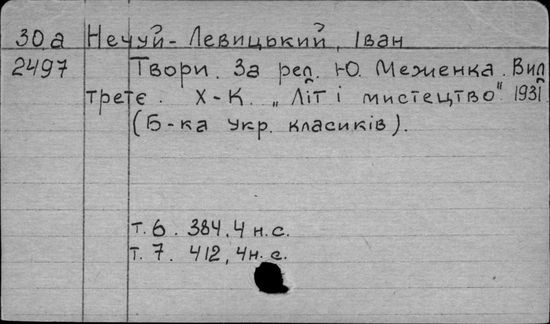 30а Нечуй-Левицький, Іван
2497 Твори. За ред. Ю. Меженка. Вид.
третє. Х-К. „Літ і мистецтво" 1931
(Б-ка укр. класиків).
т. 6. 384, 4 н.с.
т. 7. 412, 4 н.с.